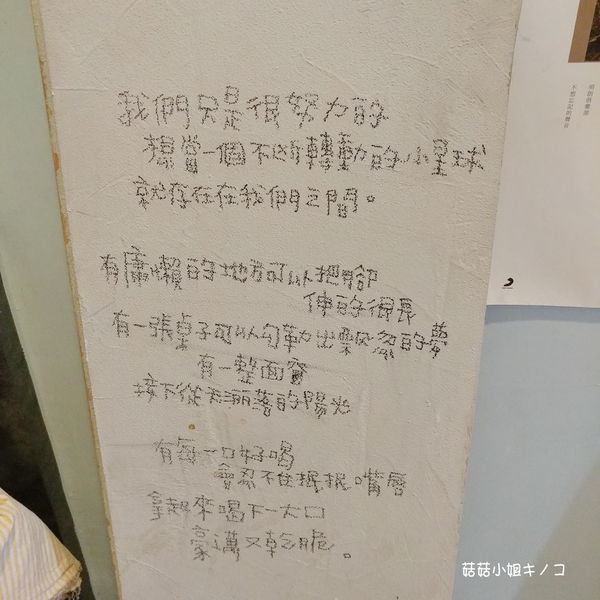 我們只是很努力的
想當一個不斷轉動的小星球
就存在在我們之間。
有慵懶的地方可以把腳
伸的很長
有一張桌子可以勾勒出飄忽的夢
有一整面窗
接下從天灑落的陽光
有每一口好喝
會忍不住抿抿嘴唇
拿起來喝下一大口
豪邁又乾脆。
不想忘記的聲音
菇菇小姐キノコ